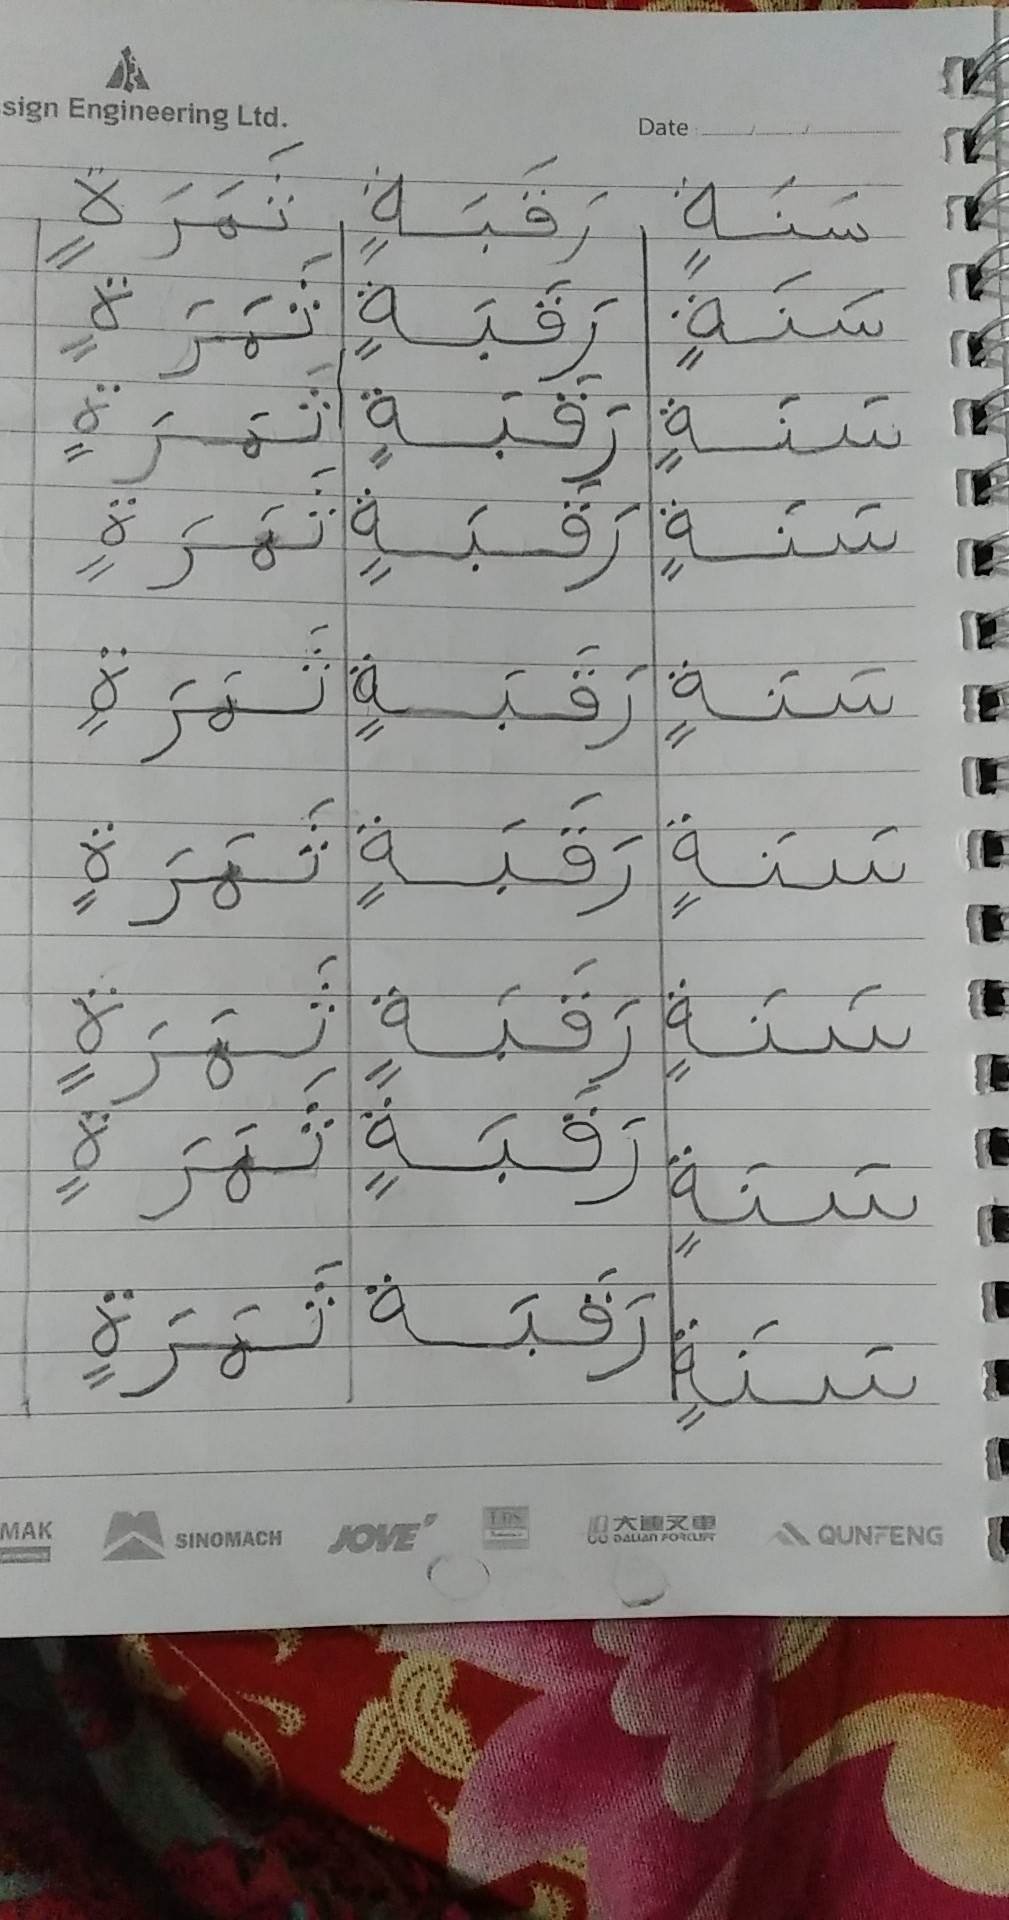 sign Engineering Ltd.
Date / /
سَنَةٍ رَقَبَةٍ ثَمَرَةٍ
سَنَةٍ رَقَبَةٍ ثَمَرَةٍ
سَنَةٍ رَقَبَةٍ ثَمَرَةٍ
سَنَةٍ رَقَبَةٍ ثَمَرَةٍ
سَنَةٍ رَقَبَةٍ ثَمَرَةٍ
سَنَةٍ رَقَبَةٍ ثَمَرَةٍ
سَنَةٍ رَقَبَةٍ ثَمَرَةٍ
سَنَةٍ رَقَبَةٍ ثَمَرَةٍ
سَنَةٍ رَقَبَة ثَمَرَةٍ
MAK SINOMACH JOVE 大連叉車 QUNFENG
DALIAN FORKLIFT